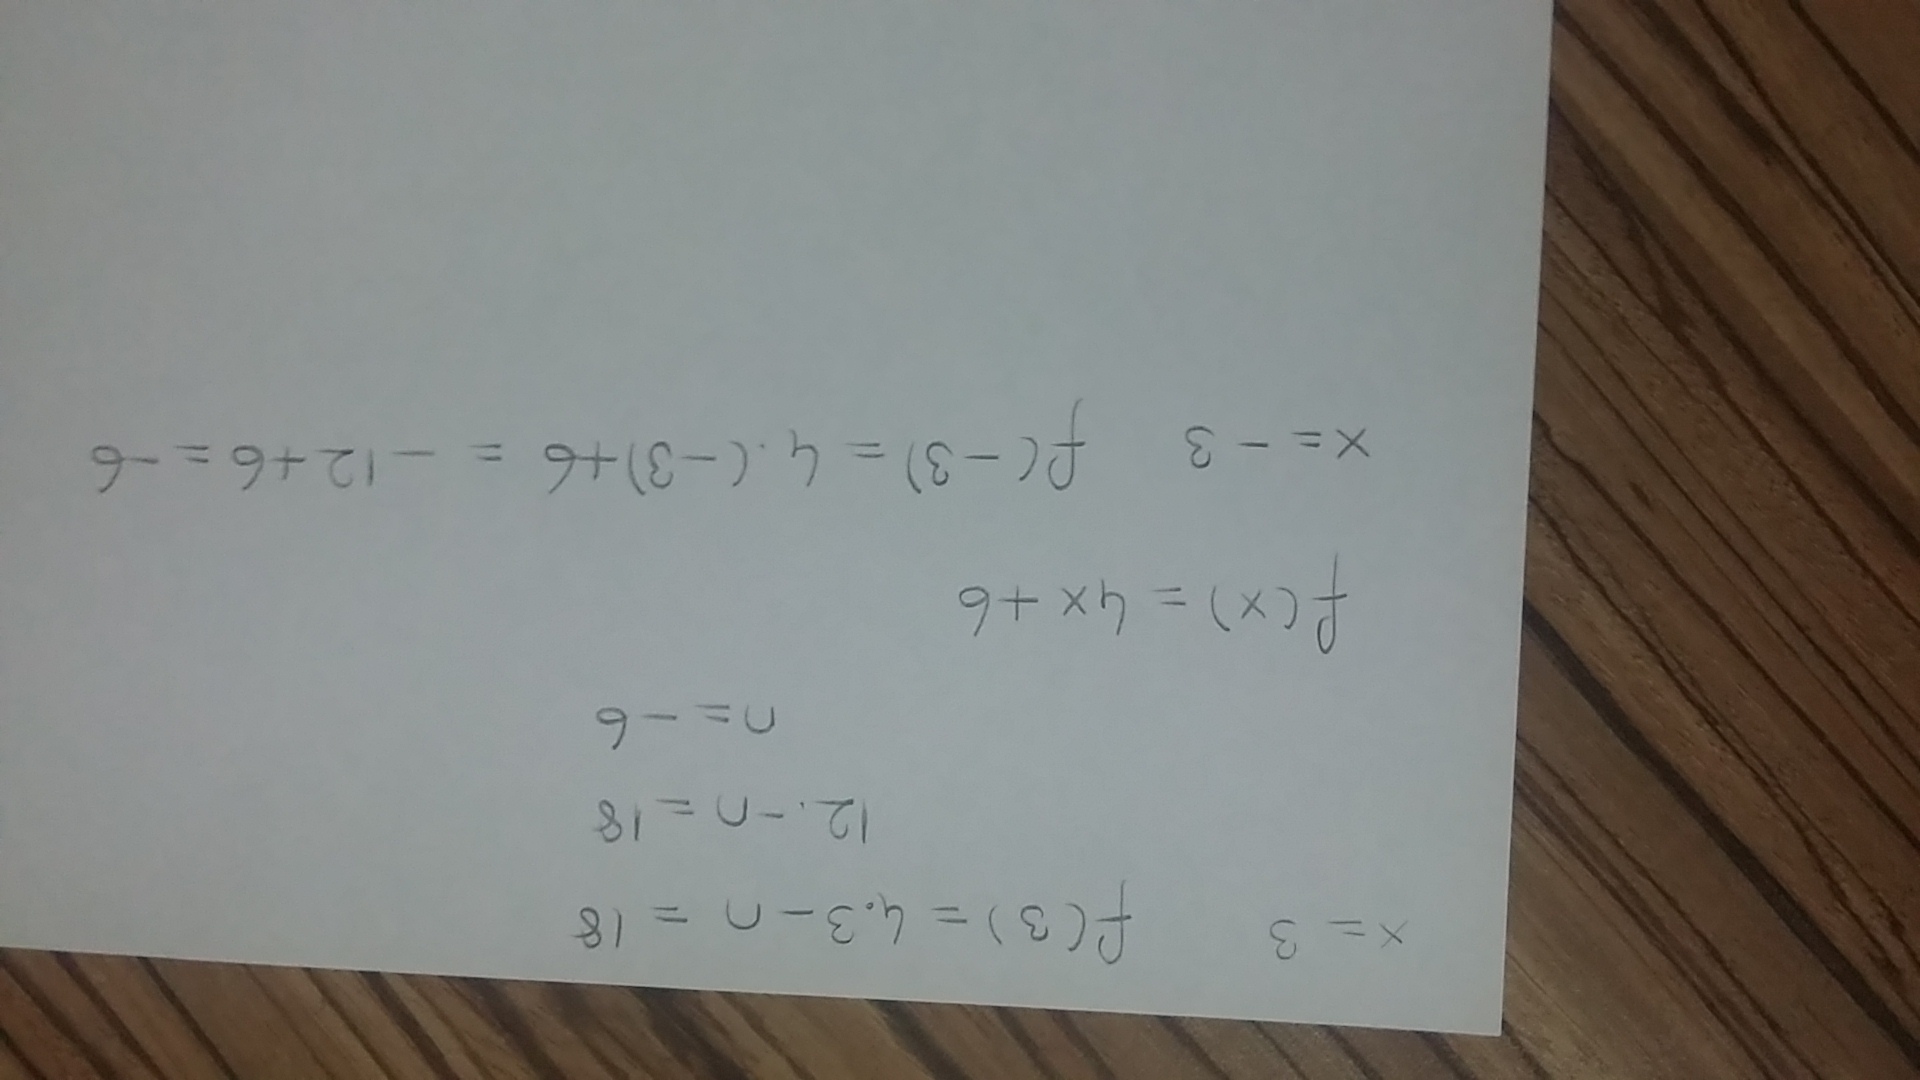 x = 3 f(3) = 4.3 - n = 18
12. - n = 18
n = -6
f(x) = 4x + 6
x = -3 f(-3) = 4.(-3)+6 = -12+6 = -6